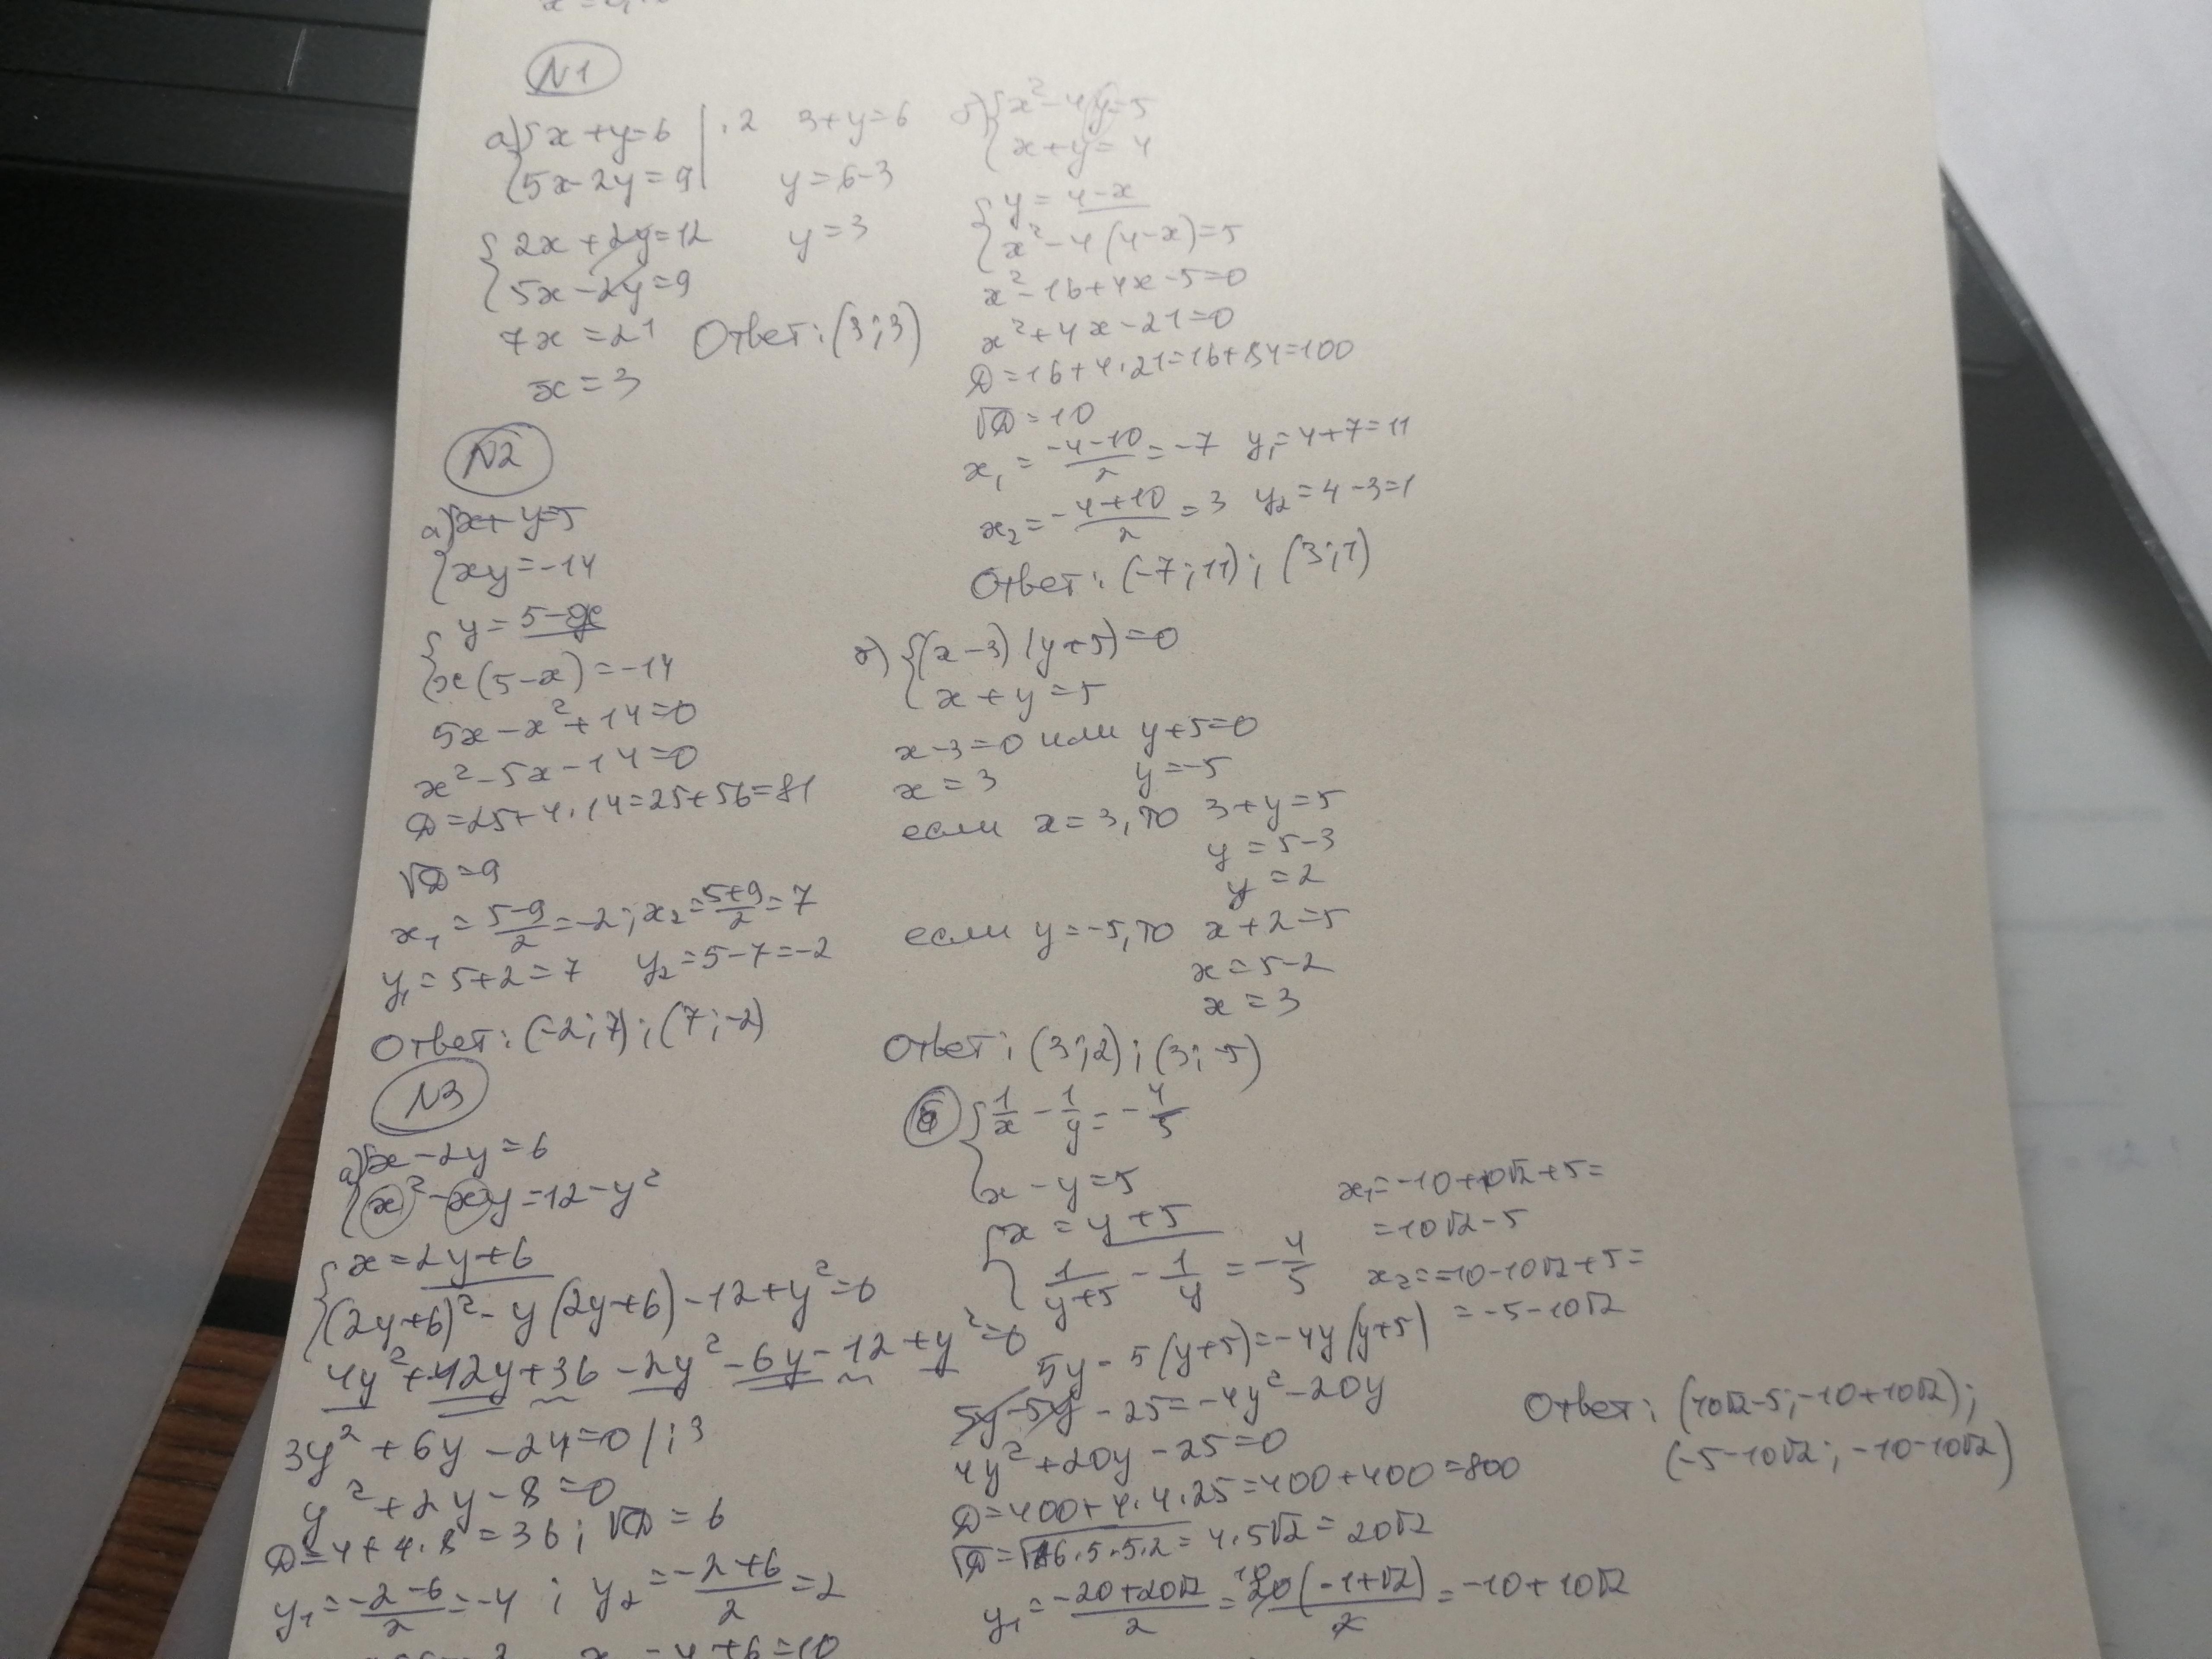 N1
а) { x+y=6 | ·2
{ 5x-2y=9
{ 2x+2y=12
{ 5x-2y=9
7x=21
x=3
3+y=6
y=6-3
y=3
Ответ: (3;3)
б) { x²-4y=5
{ x+y=4
{ y=4-x
{ x²-4(4-x)=5
x²-16+4x-5=0
x²+4x-21=0
D=16+4·21=16+84=100
√D=10
x₁=(-4-10)/2=-7 y₁=4+7=11
x₂=(-4+10)/2=3 y₂=4-3=1
Ответ: (-7;11); (3;1)
N2
а) { x+y=5
{ xy=-14
{ y=5-x
{ x(5-x)=-14
5x-x²+14=0
x²-5x-14=0
D=25+4·14=25+56=81
√D=9
x₁=(5-9)/2=-2; x₂=(5+9)/2=7
y₁=5+2=7 y₂=5-7=-2
Ответ: (-2;7); (7;-2)
б) { (x-3)(y+5)=0
{ x+y=5
x-3=0 или y+5=0
x=3 y=-5
если x=3, то 3+y=5
y=5-3
y=2
если y=-5, то x+2=5
x=5-2
x=3
Ответ: (3;2); (3;-5)
N3
а) { x-2y=6
{ x²-xy=12-y²
{ x=2y+6
{ (2y+6)²-y(2y+6)-12+y²=0
4y²+42y+36-2y²-6y-12+y²=0
3y²+6y-24=0 |:3
y²+2y-8=0
D=4+4·8=36; √D=6
y₁=(-2-6)/2=-4; y₂=(-2+6)/2=2
x =4+6=10
б) { 1/x-1/y=-4/5
{ x-y=5
{ x=y+5
{ 1/(y+5)-1/y=-4/5
5y-5(y+5)=-4y(y+5)
5y-5y-25=-4y²-20y
4y²+20y-25=0
D=400+4·4·25=400+400=800
√D=√16·5·5·2=4·5√2=20√2
y₁=(-20+20√2)/2=20(-1+√2)/2=-10+10√2
x₁=-10+10√2+5=
=10√2-5
x₂=-10-10√2+5=
=-5-10√2
Ответ: (10√2-5; -10+10√2);
(-5-10√2; -10-10√2)